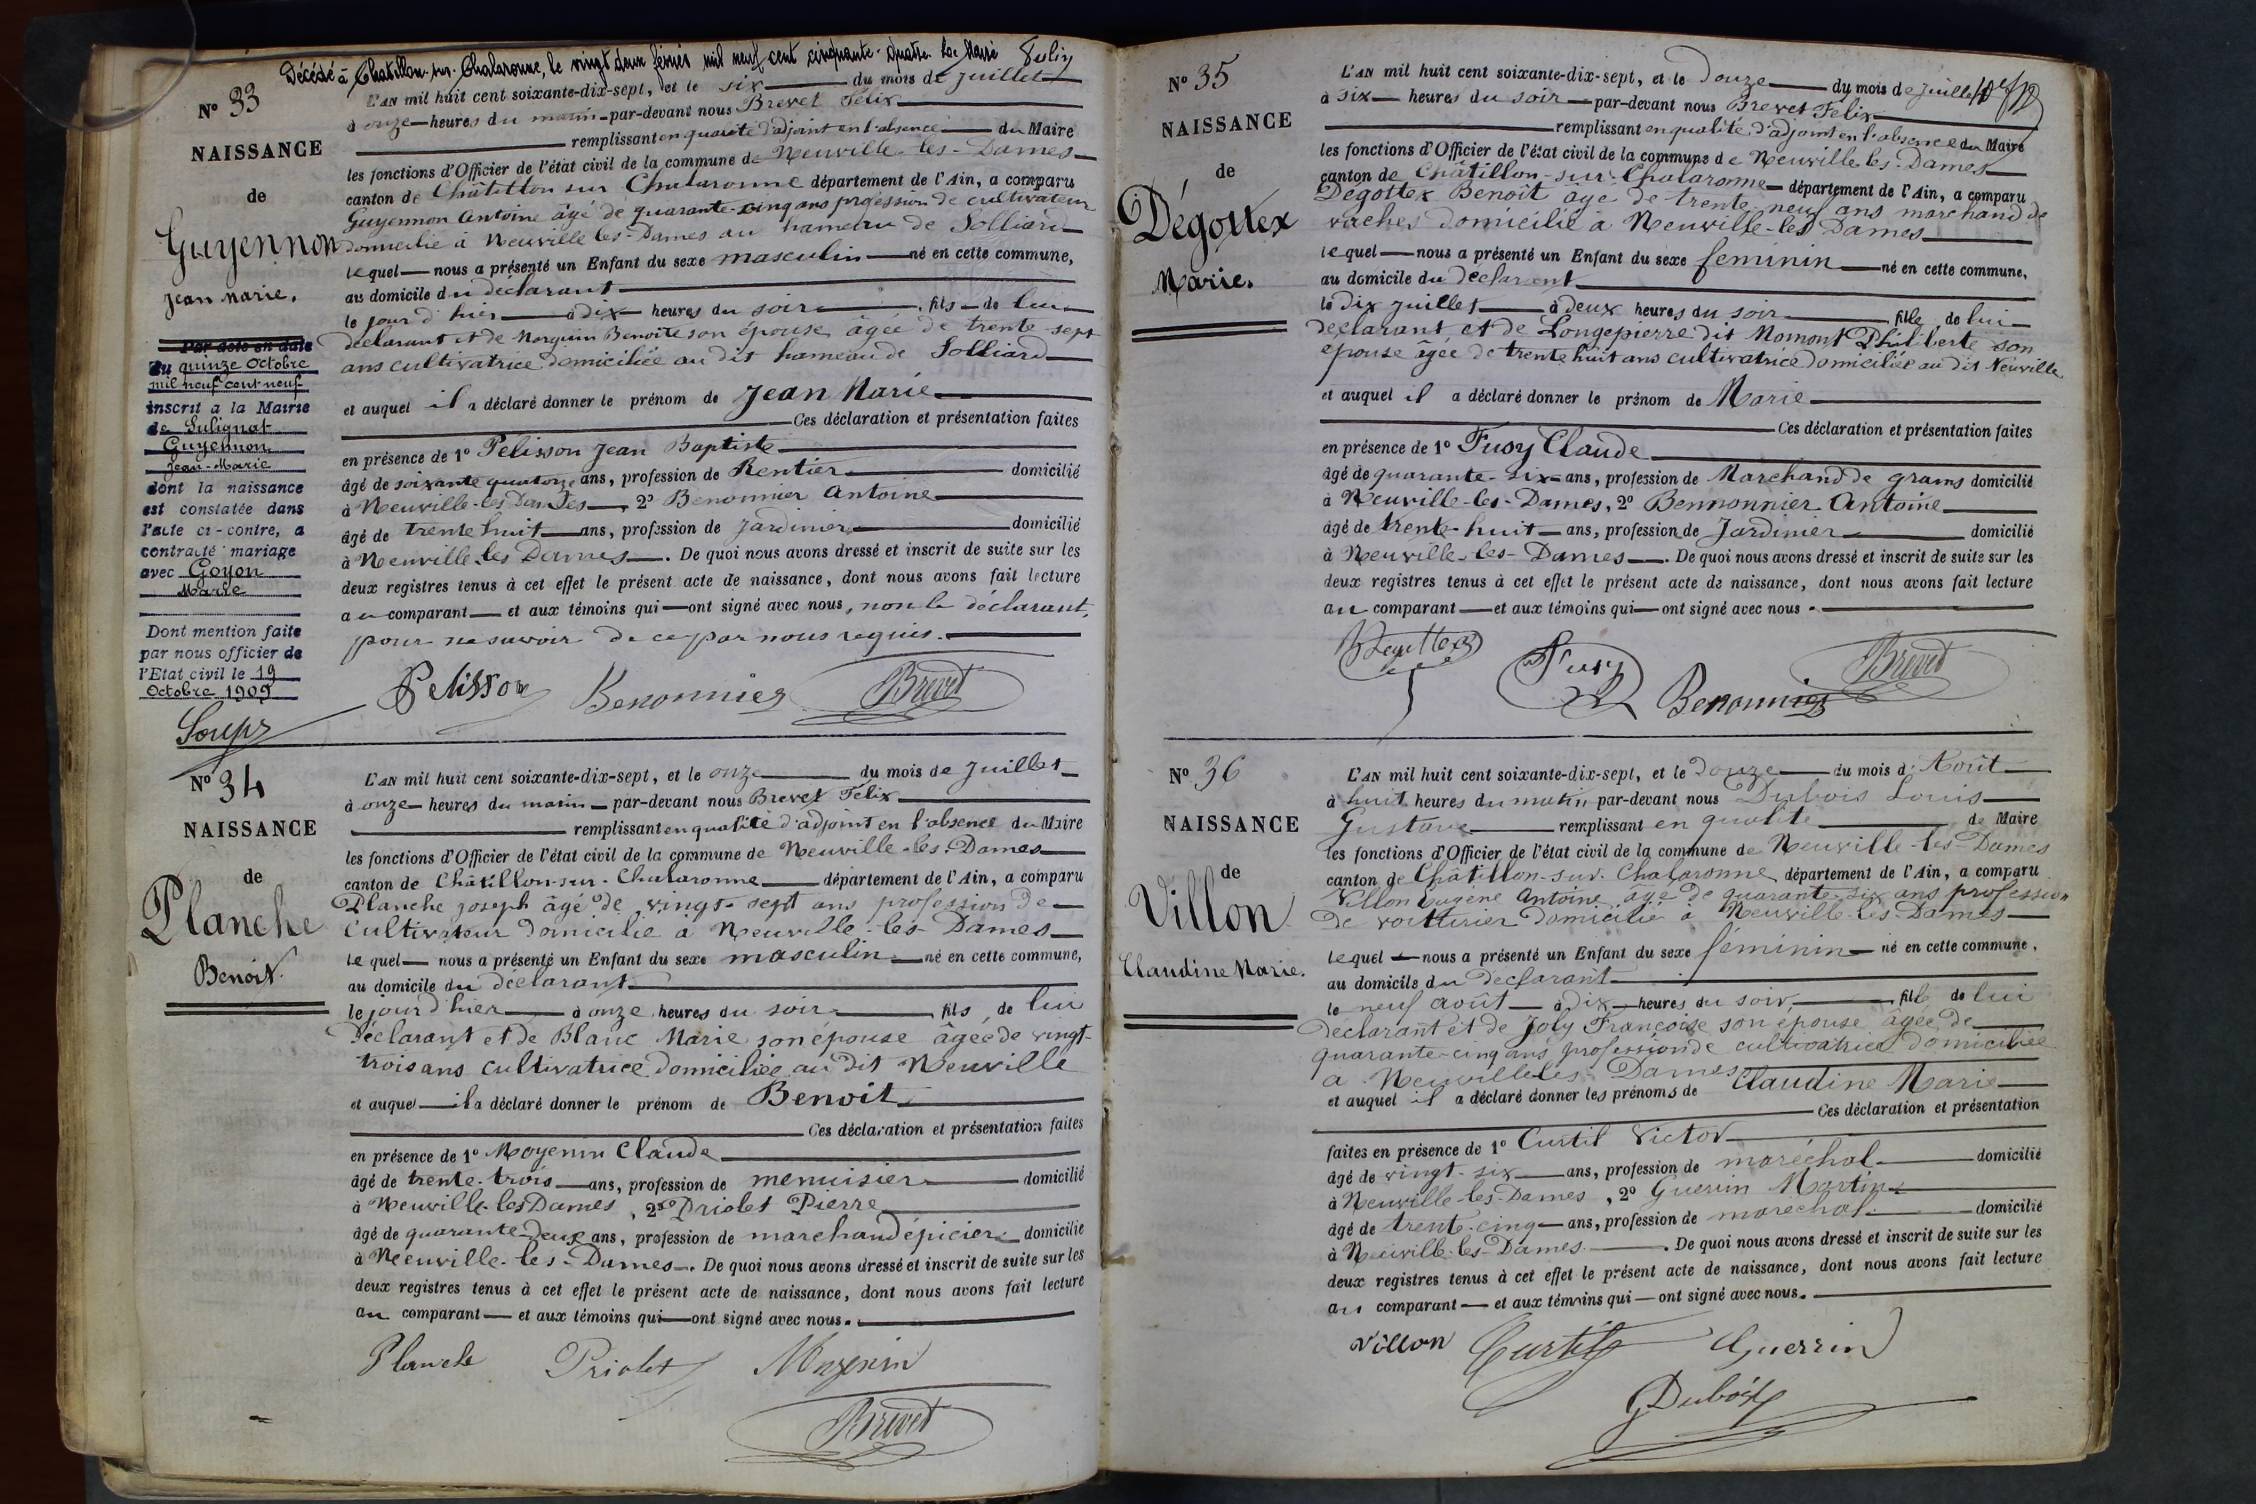 Décédé à Chatillon-sur-Chalaronne, le vingt deux février mil neuf cent cinquante-quatre. Le Maire
N° 33
NAISSANCE
de
Guyennon
Jean Marie.
Par acte en date
du quinze Octobre
mil neuf cent neuf
inscrit à la Mairie
de Sulignat
Guyennon
Jean-Marie
dont la naissance
est constatée dans
l'acte ci-contre, a
contracté mariage
avec Goyon
Marie
Dont mention faite
par nous officier de
l'Etat civil le 19
Octobre 1909
L'AN mil huit cent soixante-dix-sept, et le six du mois de Juillet
à onze heures du matin par-devant nous Brevet Félix
remplissant en qualité d'adjoint en l'absence du Maire
les fonctions d'Officier de l'état civil de la commune de Neuville-les-Dames
canton de Châtillon sur Chalaronne département de l'Ain, a comparu
Guyennon Antoine âgé de quarante-cinq ans profession de cultivateur
domicilié à Neuville les-Dames au hameau de Solliard
lequel nous a présenté un Enfant du sexe masculin né en cette commune,
au domicile du déclarant
le jour d'hier à dix heures du soir fils de lui
déclarant et de Benoite son épouse âgée de trente-sept
ans cultivatrice domiciliée au dit hameau de Solliard
et auquel il a déclaré donner le prénom de Jean Marie
Ces déclaration et présentation faites
en présence de 1° Pelisson Jean Baptiste
âgé de soixante quatorze ans, profession de Rentier domicilié
à Neuville-les-Dames, 2° Benonnier Antoine
âgé de trente huit ans, profession de Jardinier domicilié
à Neuville-les Dames. De quoi nous avons dressé et inscrit de suite sur les
deux registres tenus à cet effet le présent acte de naissance, dont nous avons fait lecture
au comparant et aux témoins qui ont signé avec nous, non le déclarant,
pour ne savoir de ce par nous requis.
Pelisson Benonnier Brevet
N° 34
NAISSANCE
de
Planche
Benoît.
L'AN mil huit cent soixante-dix-sept, et le onze du mois de Juillet
à onze heures du matin par-devant nous Brevet Félix
remplissant en qualité d'adjoint en l'absence du Maire
les fonctions d'Officier de l'état civil de la commune de Neuville-les-Dames
canton de Châtillon-sur-Chalaronne département de l'Ain, a comparu
Planche Joseph âgé de vingt-sept ans profession de
cultivateur domicilié à Neuville-les-Dames
lequel nous a présenté un Enfant du sexe masculin né en cette commune,
au domicile du déclarant
le jour d'hier à onze heures du soir fils de lui
déclarant et de Blanc Marie son épouse âgée de vingt-
trois ans cultivatrice domiciliée au dit Neuville
et auquel il a déclaré donner le prénom de Benoit
Ces déclaration et présentation faites
en présence de 1° Moyenin Claude
âgé de trente-trois ans, profession de menuisier domicilié
à Neuville-les Dames, 2° Priolet Pierre
âgé de quarante deux ans, profession de marchand épicier domicilié
à Neuville-les-Dames. De quoi nous avons dressé et inscrit de suite sur les
deux registres tenus à cet effet le présent acte de naissance, dont nous avons fait lecture
au comparant et aux témoins qui ont signé avec nous.
Planche Priolet Moyenin
Brevet
N° 35
NAISSANCE
de
Dégottex
Marie.
L'AN mil huit cent soixante-dix-sept, et le douze du mois de Juillet
à six heures du soir par-devant nous Brevet Félix
remplissant en qualité d'adjoint en l'absence du Maire
les fonctions d'Officier de l'état civil de la commune de Neuville-les-Dames
canton de Châtillon-sur-Chalaronne département de l'Ain, a comparu
Dégottex Benoît âgé de trente-neuf ans marchand de
vaches domicilié à Neuville-les Dames
lequel nous a présenté un Enfant du sexe féminin né en cette commune,
au domicile du déclarant
le dix Juillet à deux heures du soir fille de lui
déclarant et de Longepierre dit Momont Philiberte son
épouse âgée de trente huit ans cultivatrice domiciliée au dit Neuville
et auquel il a déclaré donner le prénom de Marie
Ces déclaration et présentation faites
en présence de 1° Fusy Claude
âgé de quarante-six ans, profession de Marchand de grains domicilié
à Neuville-les-Dames, 2° Bennonnier Antoine
âgé de trente-huit ans, profession de Jardinier domicilié
à Neuville-les-Dames. De quoi nous avons dressé et inscrit de suite sur les
deux registres tenus à cet effet le présent acte de naissance, dont nous avons fait lecture
au comparant et aux témoins qui ont signé avec nous.
Dégottex Fusy Benonnier Brevet
N° 36
NAISSANCE
de
Villon
Claudine Marie.
L'AN mil huit cent soixante-dix-sept, et le douze du mois d'Août
à huit heures du matin par-devant nous Dubois Louis
Gustave remplissant en qualité de Maire
les fonctions d'Officier de l'état civil de la commune de Neuville-les-Dames
canton de Châtillon-sur-Chalaronne département de l'Ain, a comparu
Villon Eugène Antoine âgé de quarante-six ans profession
de voitturier domicilié à Neuville-les-Dames
lequel nous a présenté un Enfant du sexe féminin né en cette commune,
au domicile du déclarant
le neuf août à dix heures du soir fille de lui
déclarant et de Joly Françoise son épouse âgée de
quarante-cinq ans profession de cultivatrice domiciliée
à Neuville les Dames
et auquel il a déclaré donner les prénoms de Claudine Marie
Ces déclaration et présentation
faites en présence de 1° Curtil Victor
âgé de vingt-six ans, profession de maréchal domicilié
à Neuville-les-Dames, 2° Guerrin Martin
âgé de trente-cinq ans, profession de maréchal domicilié
à Neuville-les-Dames. De quoi nous avons dressé et inscrit de suite sur les
deux registres tenus à cet effet le présent acte de naissance, dont nous avons fait lecture
au comparant et aux témoins qui ont signé avec nous.
Villon Curtil Guerrin
G Dubois